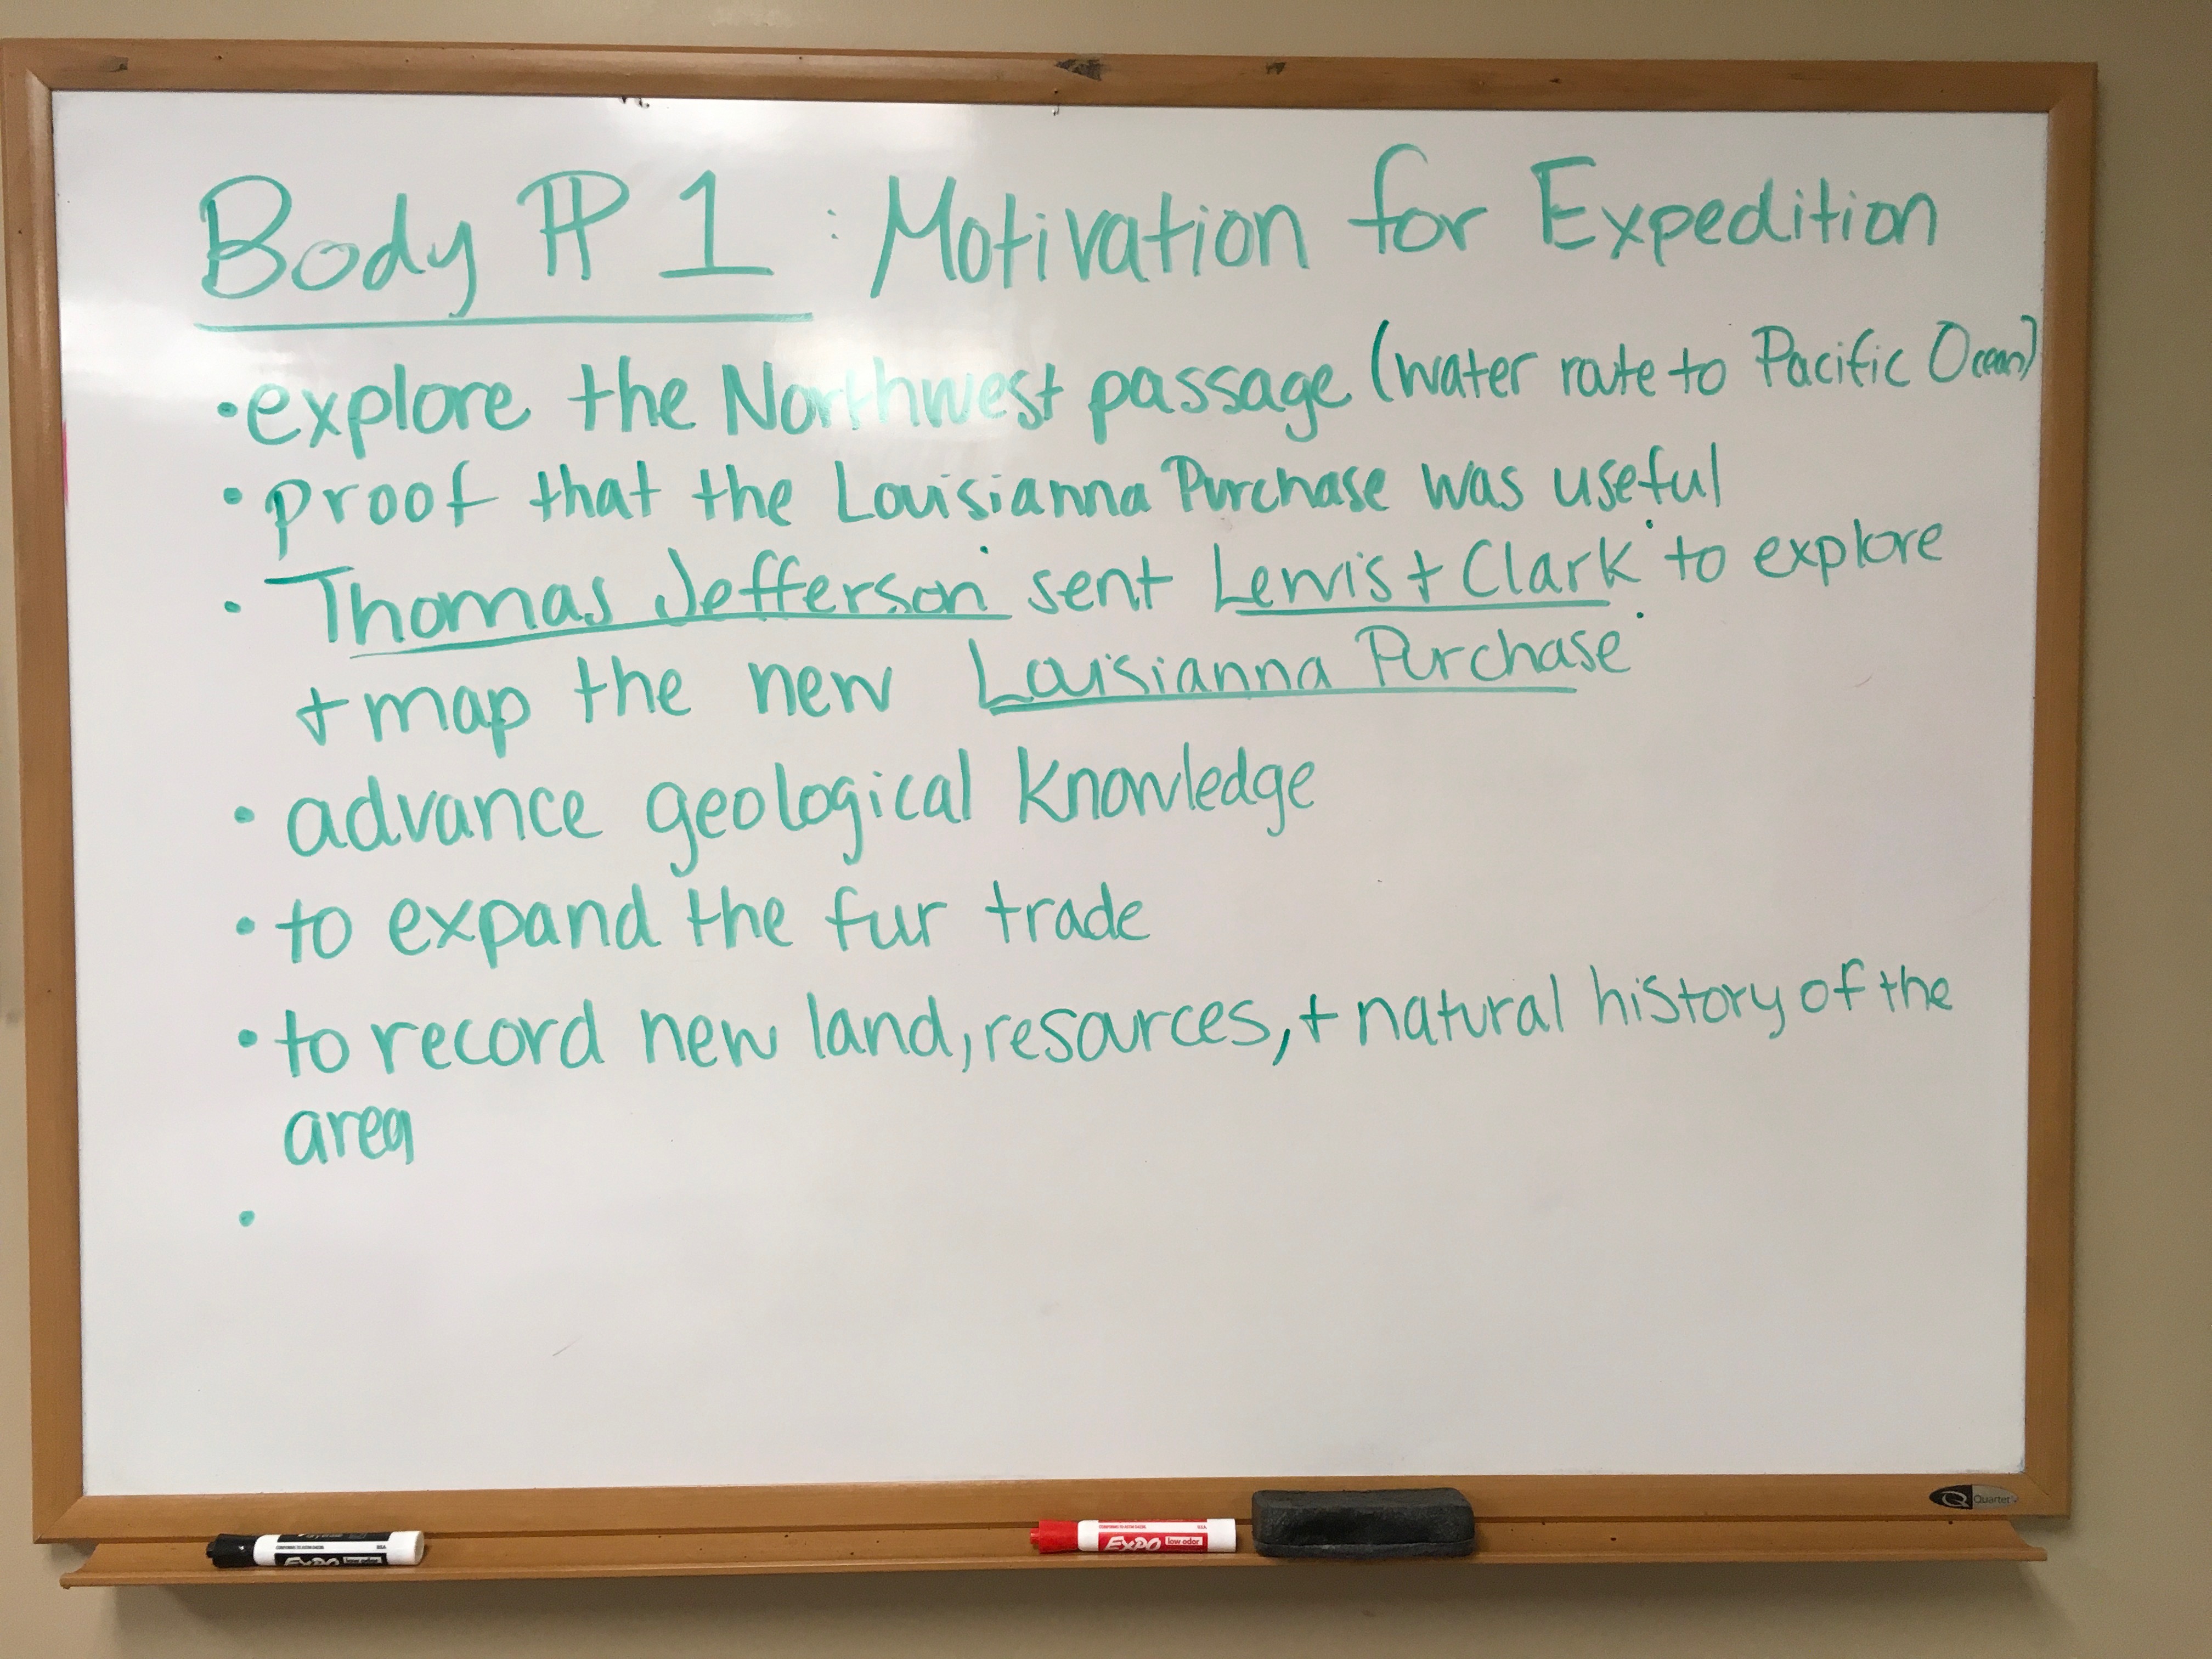 Body ¶ 1 : Motivation for Expedition
• explore the Northwest passage (water route to Pacific Ocean)
• proof that the Louisianna Purchase was useful
• Thomas Jefferson sent Lewis + Clark to explore
+ map the new Louisianna Purchase
• advance geological knowledge
• to expand the fur trade
• to record new land, resources, + natural history of the
area
•
Quartet
EXPO low odor
EXPO low odor